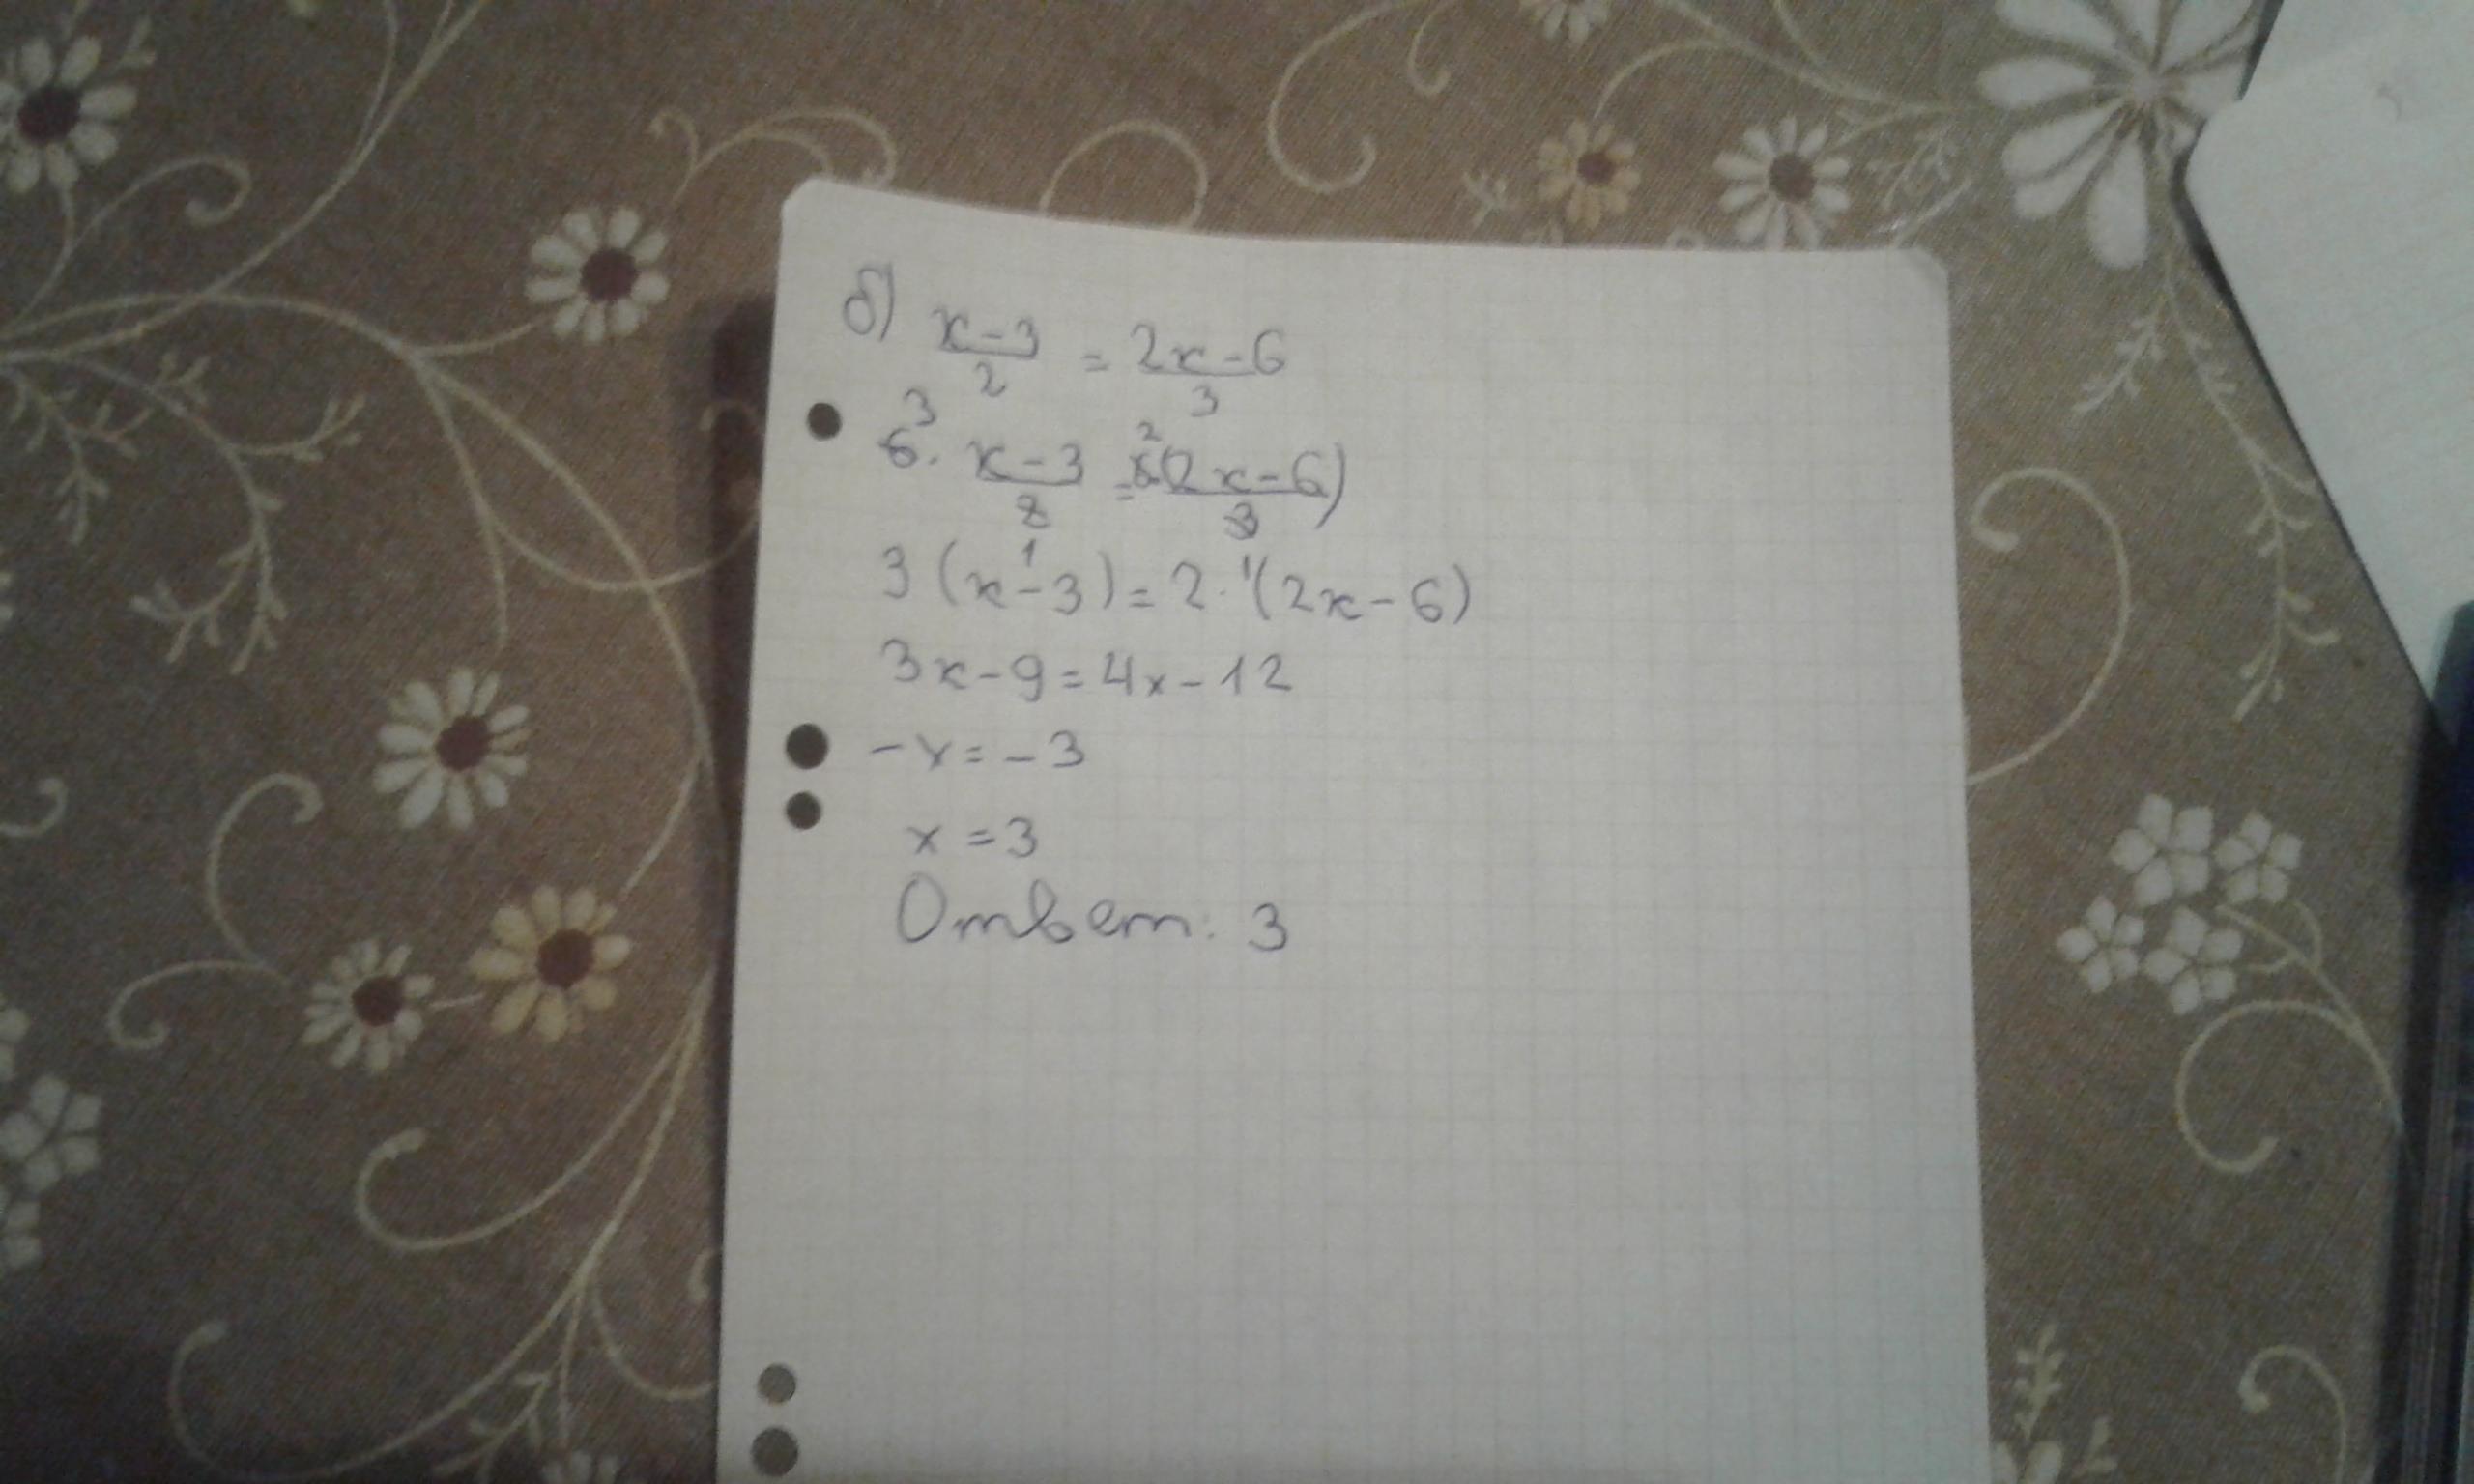 б) x-3/2 = 2x-6/3
6³ · x-3/2 = 6²(2x-6)/3
3(x-3) = 2·(2x-6)
3x-9=4x-12
-x=-3
x=3
Ответ: 3